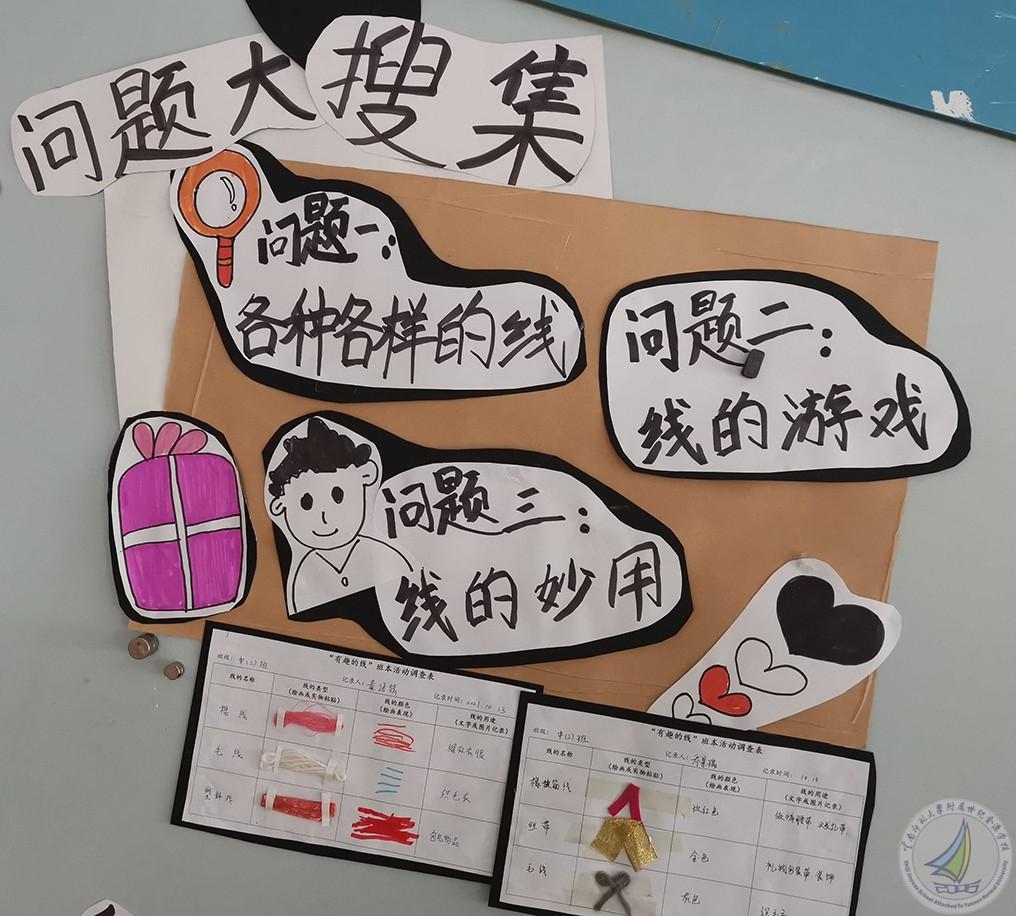 问题大搜集
问题一：
各种各样的线
问题二：
线的游戏
问题三：
线的妙用
"有趣的线"班本活动调查表
班级：中(2)班
记录人：
记录时间：2021.10.13
线的名称
线的类型
(绘画或实物粘贴)
线的颜色
(绘画表现)
线的用途
(文字或图片记录)
棉线
缝补衣服
毛线
织毛衣
包扎物品
"有趣的线"班本活动调查表
班级：中(2)班
记录人：
记录时间：10.13
线的名称
线的类型
(绘画或实物粘贴)
线的颜色
(绘画表现)
线的用途
(文字或图片记录)
橡筋线
玫红色
丝带
金色
礼物包装带 装饰
毛线
灰色
云南师范大学附属世纪金源学校
Shiji Jinyuan School Attached To Yunnan Normal University